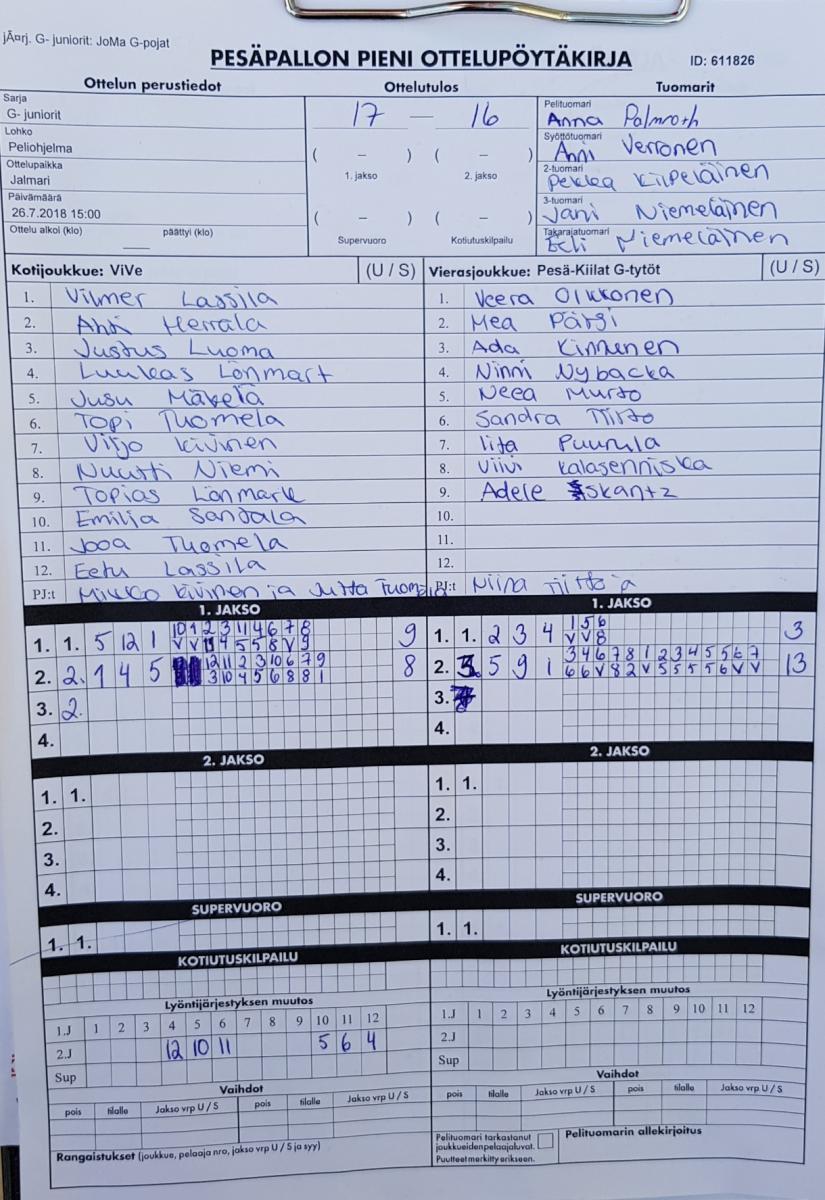 jÃ¤rj. G- juniorit: JoMa G-pojat
PESÄPALLON PIENI OTTELUPÖYTÄKIRJA
ID: 611826
Ottelun perustiedot
Ottelutulos
Tuomarit
Sarja
G- juniorit
Lohko
Peliohjelma
Ottelupaikka
Jalmari
Päivämäärä
26.7.2018 15:00
Ottelu alkoi (klo) päättyi (klo)
17 — 16
( – ) ( – )
1. jakso 2. jakso
( – ) ( – )
Supervuoro Kotiutuskilpailu
Pelituomari
Anna Palmroth
Syöttötuomari
Anni Verronen
2-tuomari
Pekka Kilpeläinen
3-tuomari
Jani Niemeläinen
Takarajatuomari
Eeli Niemeläinen
Kotijoukkue: ViVe (U / S)
1. Vilmer Lassila
2. Ahti Herrala
3. Justus Luoma
4. Luukas Lönmart
5. Jusu Mäkelä
6. Topi Tuomela
7. Viljo Kivinen
8. Nuutti Niemi
9. Topias Lönmark
10. Emilia Santala
11. Jooa Tuomela
12. Eetu Lassila
PJ:t Mikko Kivinen ja Jutta
Vierasjoukkue: Pesä-Kiilat G-tytöt (U / S)
1. Veera Olkkonen
2. Mea Pärsi
3. Ada Kinnunen
4. Ninni Nybacka
5. Neea Murto
6. Sandra Tiitto
7. Iita Puurula
8. Viivi Kalasenniska
9. Adele Skantz
10.
11.
12.
PJ:t Niina Tiitto
1. JAKSO
1. 1. 5 12 1 10 1 2 3 11 4 6 7 8 9
V V 11 4 5 5 8 V 9
2. 2. 1 4 5 12 11 2 3 10 6 7 9 8
3 10 4 5 6 8 8 1
3. 2.
4.
1. JAKSO
1. 1. 2 3 4 1 5 6 3
V V 8
2. 3. 5 9 1 3 4 6 7 8 1 2 3 4 5 5 6 7 13
6 6 V 8 2 V 5 5 5 5 6 V V
3.
4.
2. JAKSO
1. 1.
2.
3.
4.
2. JAKSO
1. 1.
2.
3.
4.
SUPERVUORO
1. 1.
SUPERVUORO
1. 1.
KOTIUTUSKILPAILU
KOTIUTUSKILPAILU
Lyöntijärjestyksen muutos
1.J 1 2 3 4 5 6 7 8 9 10 11 12
2.J 12 10 11 5 6 4
Sup
Lyöntijärjestyksen muutos
1.J 1 2 3 4 5 6 7 8 9 10 11 12
2.J
Sup
Vaihdot
pois tilalle Jakso vrp U / S pois tilalle Jakso vrp U / S
Vaihdot
pois tilalle Jakso vrp U / S pois tilalle Jakso vrp U / S
Rangaistukset (joukkue, pelaaja nro, jakso vrp U / S ja syy)
Pelituomari tarkastanut
joukkueidenpelaajaluvat.
Puutteet merkitty erikseen.
Pelituomarin allekirjoitus